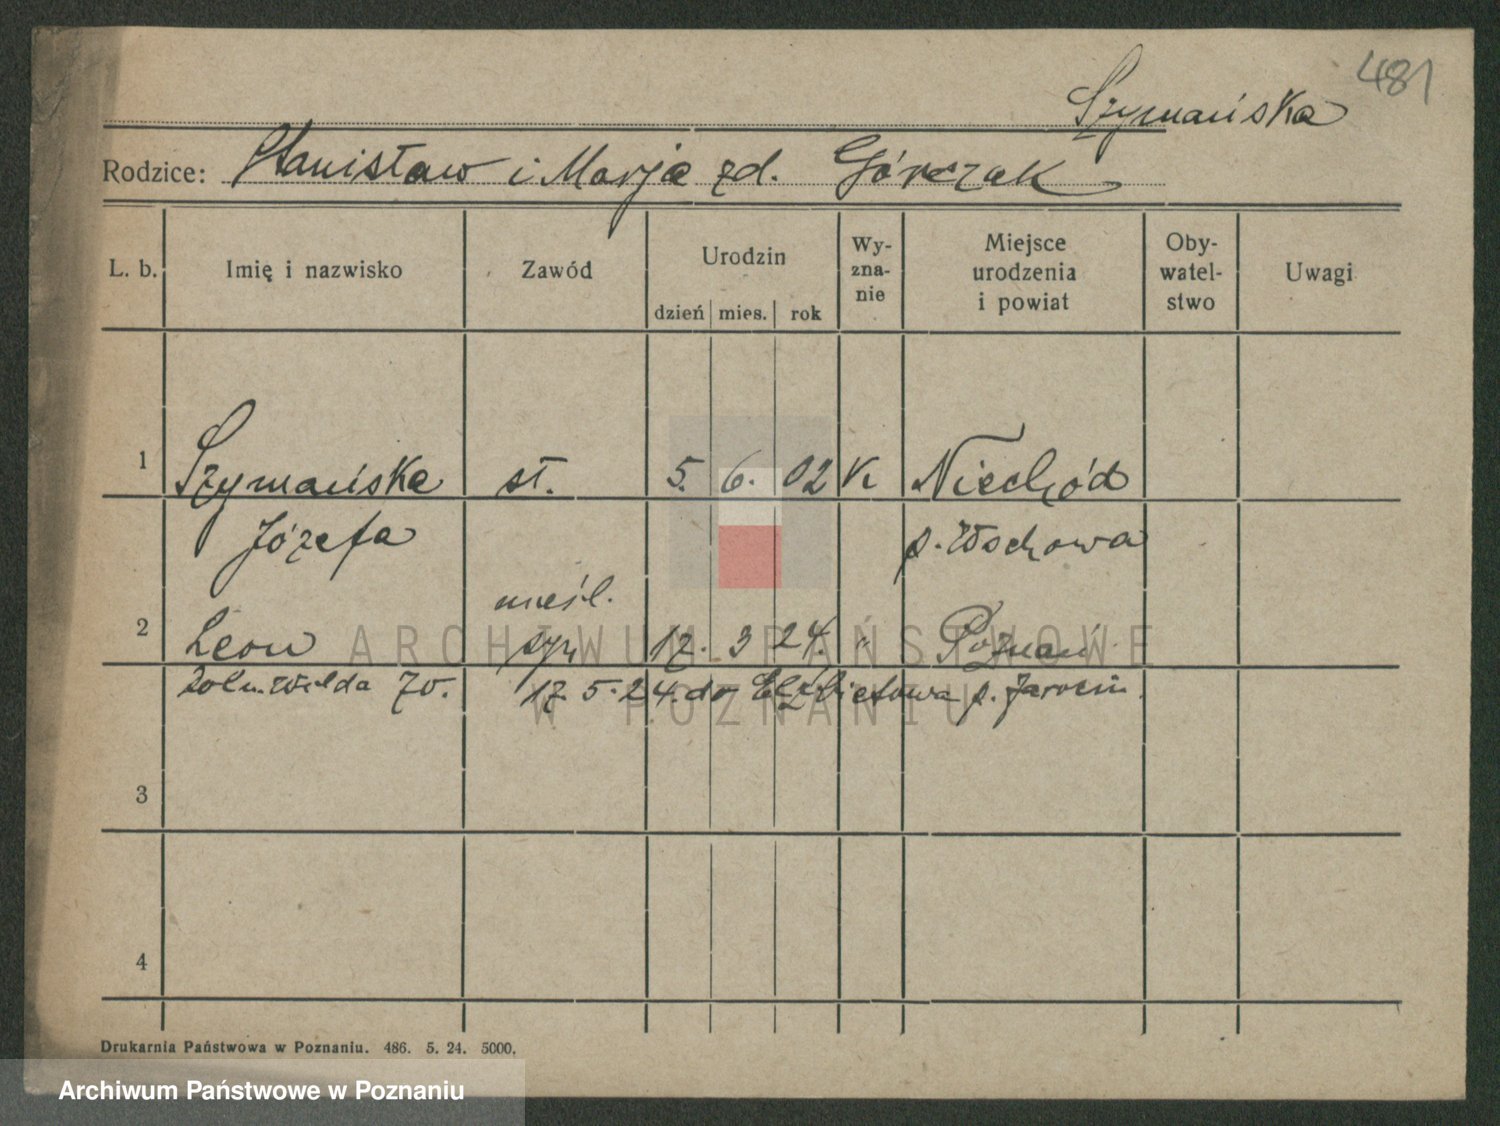 481
Szymańska
Rodzice: Stanisław i Marja zd. Górczak
L. b. Imię i nazwisko Zawód Urodzin dzień mies. rok Wy-zna-nie Miejsce urodzenia i powiat Oby-watel-stwo Uwagi
1 Szymańska st. 5. 6. 02 K Niechłód
Józefa p. Wschowa
nieśl.
2 Leon syn 17. 3 24. " Poznań
Doln. Wilda 70. 17. 5. 24. do Elżbietowa p. Jarocin.
3
4
Drukarnia Państwowa w Poznaniu. 486. 5. 24. 5000.
ARCHIWUM PAŃSTWOWE
W POZNANIU
Archiwum Państwowe w Poznaniu